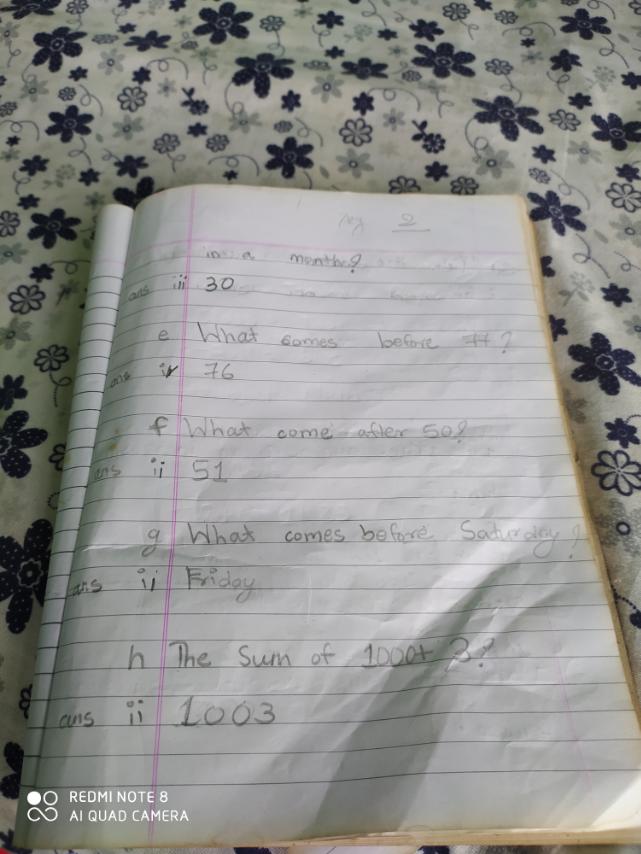 pg 2
in a month?
ans iii 30
e What comes before 77?
ans iv 76
f What come after 50?
ans ii 51
g What comes before Saturday?
ans ii Friday
h The Sum of 1000+ 3?
ans ii 1003
REDMI NOTE 8
AI QUAD CAMERA